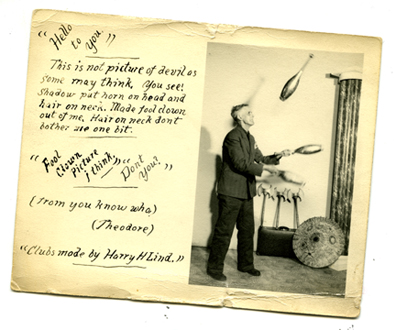 "Hello
to you."
This is not picture of devil as
some may think, You see!
Shadow put horn on head and
hair on neck. Made fool clown
out of me. Hair on neck dont
bother me one bit.
"Fool
Clown
Picture
I think," "Dont
You?"
(from you know who)
(Theodore)
"Clubs made by Harry H Lind."